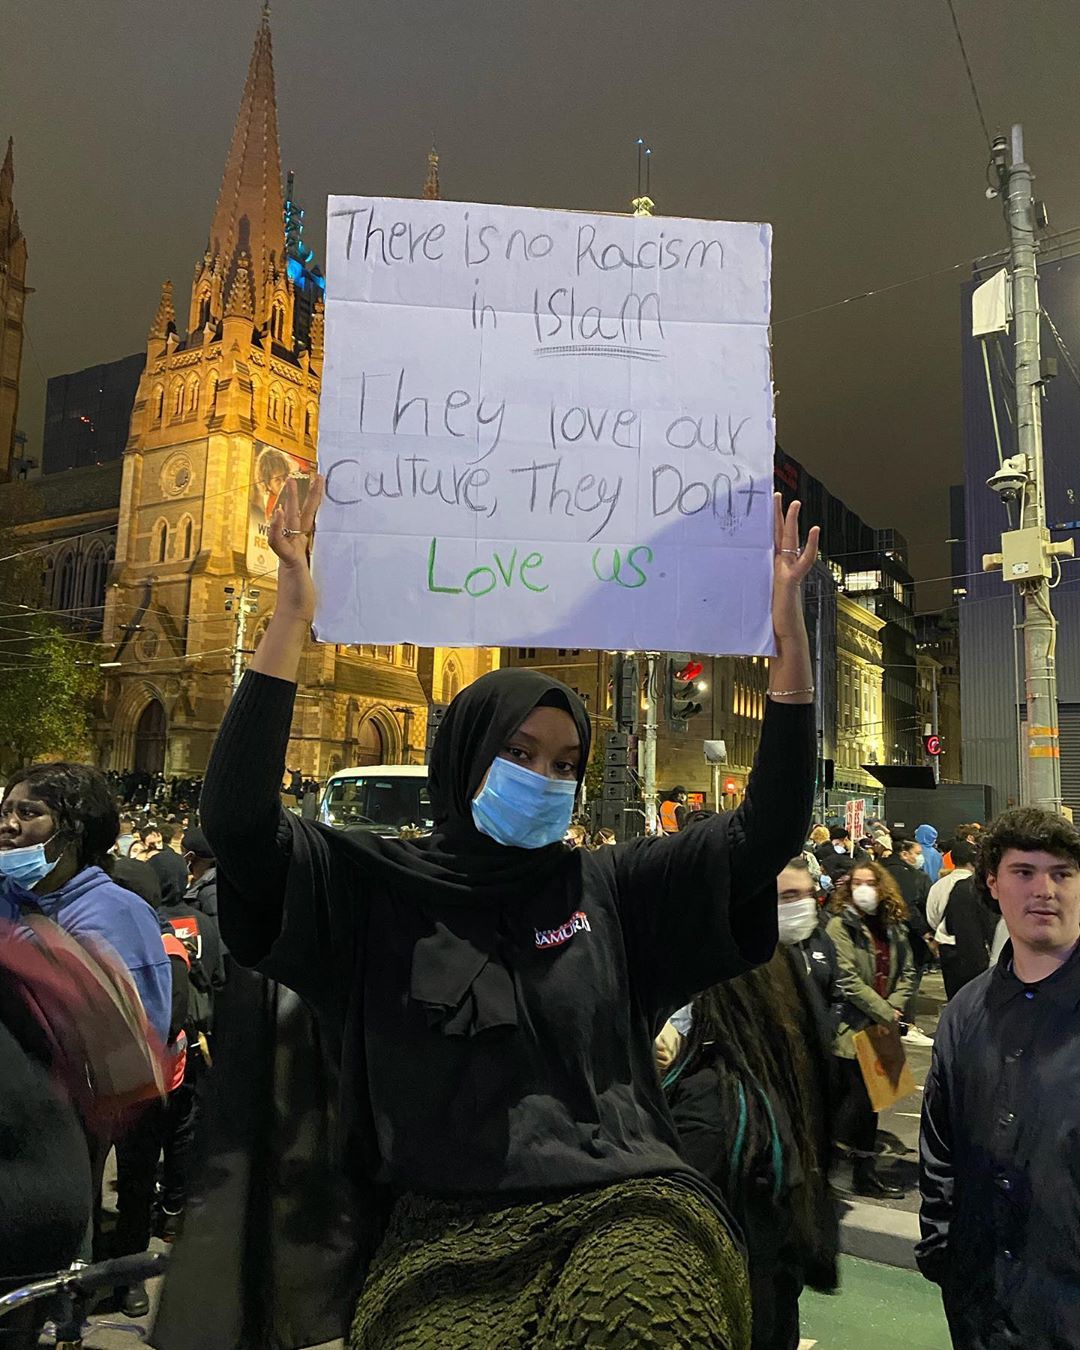 There is no Racism
in ISlam
They love our
Culture, They Don't
Love us.
SAMURAI